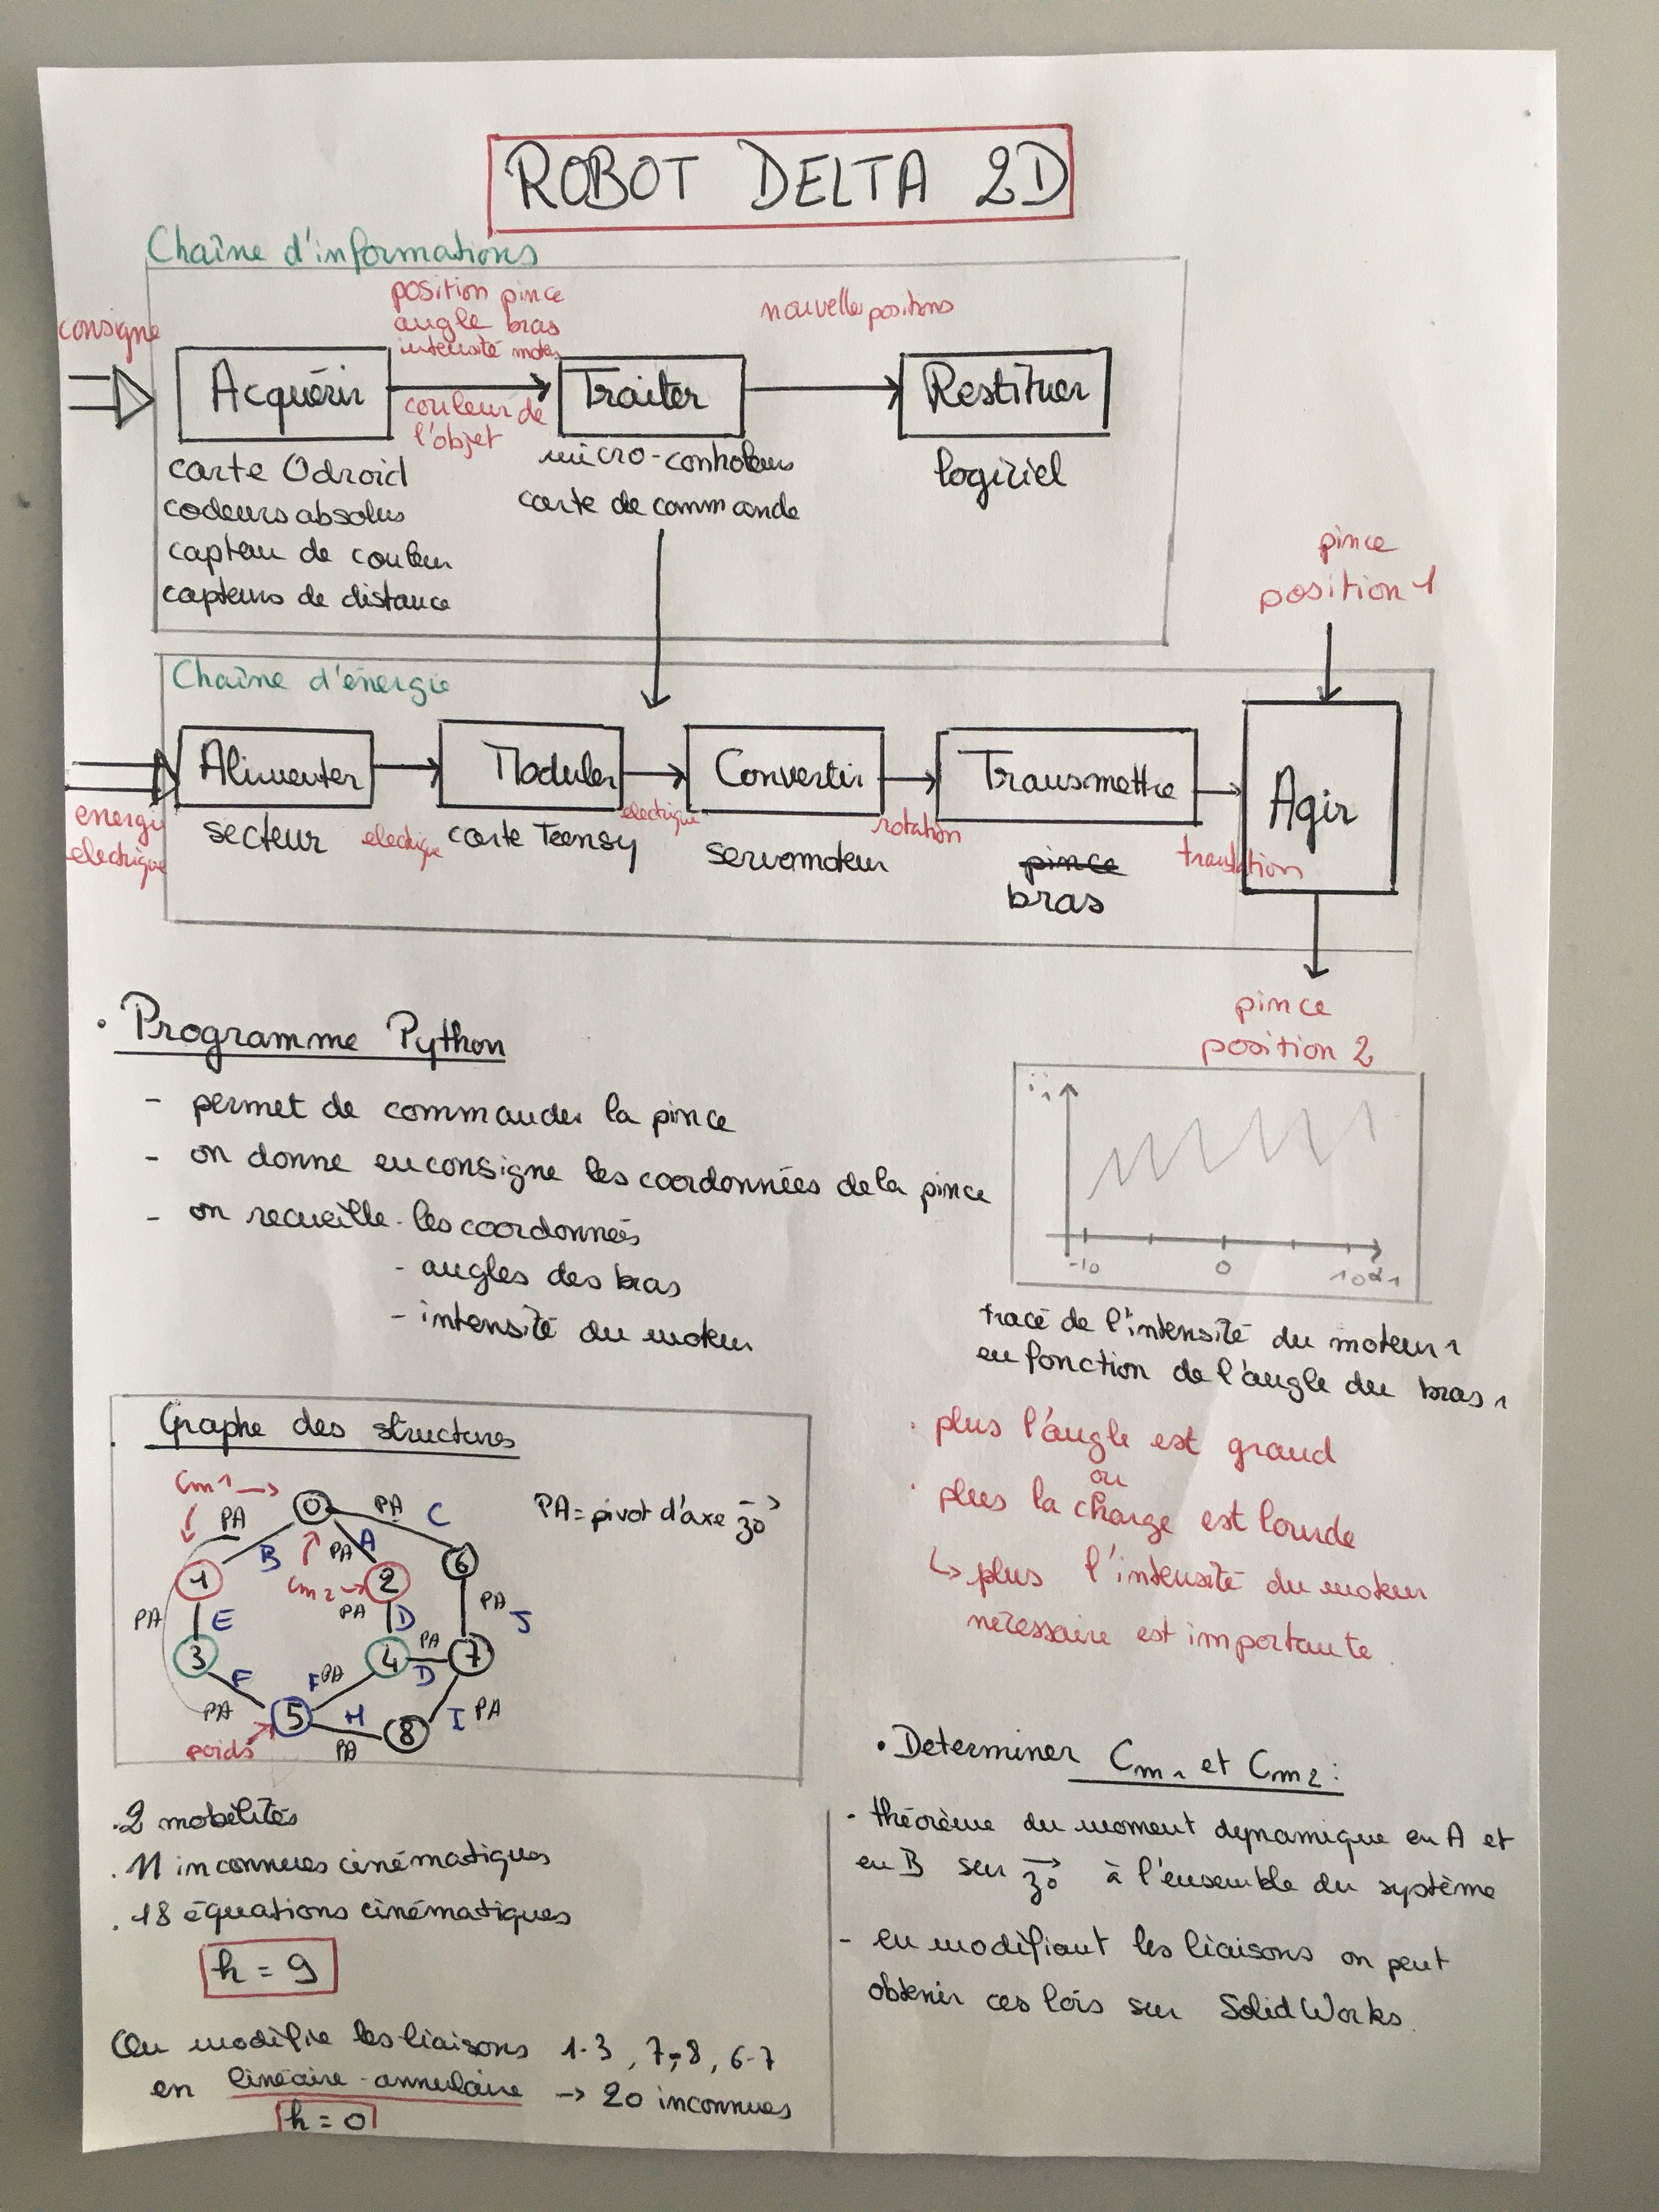 ROBOT DELTA 2D
Chaîne d'informations
consigne
position pince
angle bras
intensité moteur
couleur de
l'objet
nouvelles positions
Acquérir
Traiter
Restituer
carte Odroid
codeurs absolus
capteur de couleur
capteurs de distance
micro-controleurs
carte de commande
logiciel
pince
position 1
Chaîne d'énergie
energie
electrique
Alimenter
Moduler
Convertir
Transmettre
Agir
secteur
electrique
carte Teensy
electrique
servomoteur
rotation
pince
bras
translation
pince
position 2
• Programme Python
- permet de commander la pince
- on donne en consigne les coordonnées de la pince
- on recueille - les coordonnées
- angles des bras
- intensité du moteur
i1
-10
0
10 α1
tracé de l'intensité du moteur 1
en fonction de l'angle du bras 1
• plus l'angle est grand
ou
• plus la charge est lourde
↳ plus l'intensité du moteur
nécessaire est importante.
. Graphe des structures
Cm1 →
PA
0
PA
C
B
PA
A
1
Cm2 →
2
6
PA
E
PA
D
PA
J
3
4
PA
D
7
F
F
PA
PA
5
H
PA
8
I
PA
poids
PA = pivot d'axe z0
. 2 mobilités
. 11 inconnues cinématiques
. 18 équations cinématiques
h = 9
On modifie les liaisons 1-3, 7-8, 6-7
en linéaire-annulaire → 20 inconnues
h = 0
• Determiner Cm1 et Cm2 :
- théorème du moment dynamique en A et
en B sur z0 à l'ensemble du système
- en modifiant les liaisons on peut
obtenir ces lois sur SolidWorks.